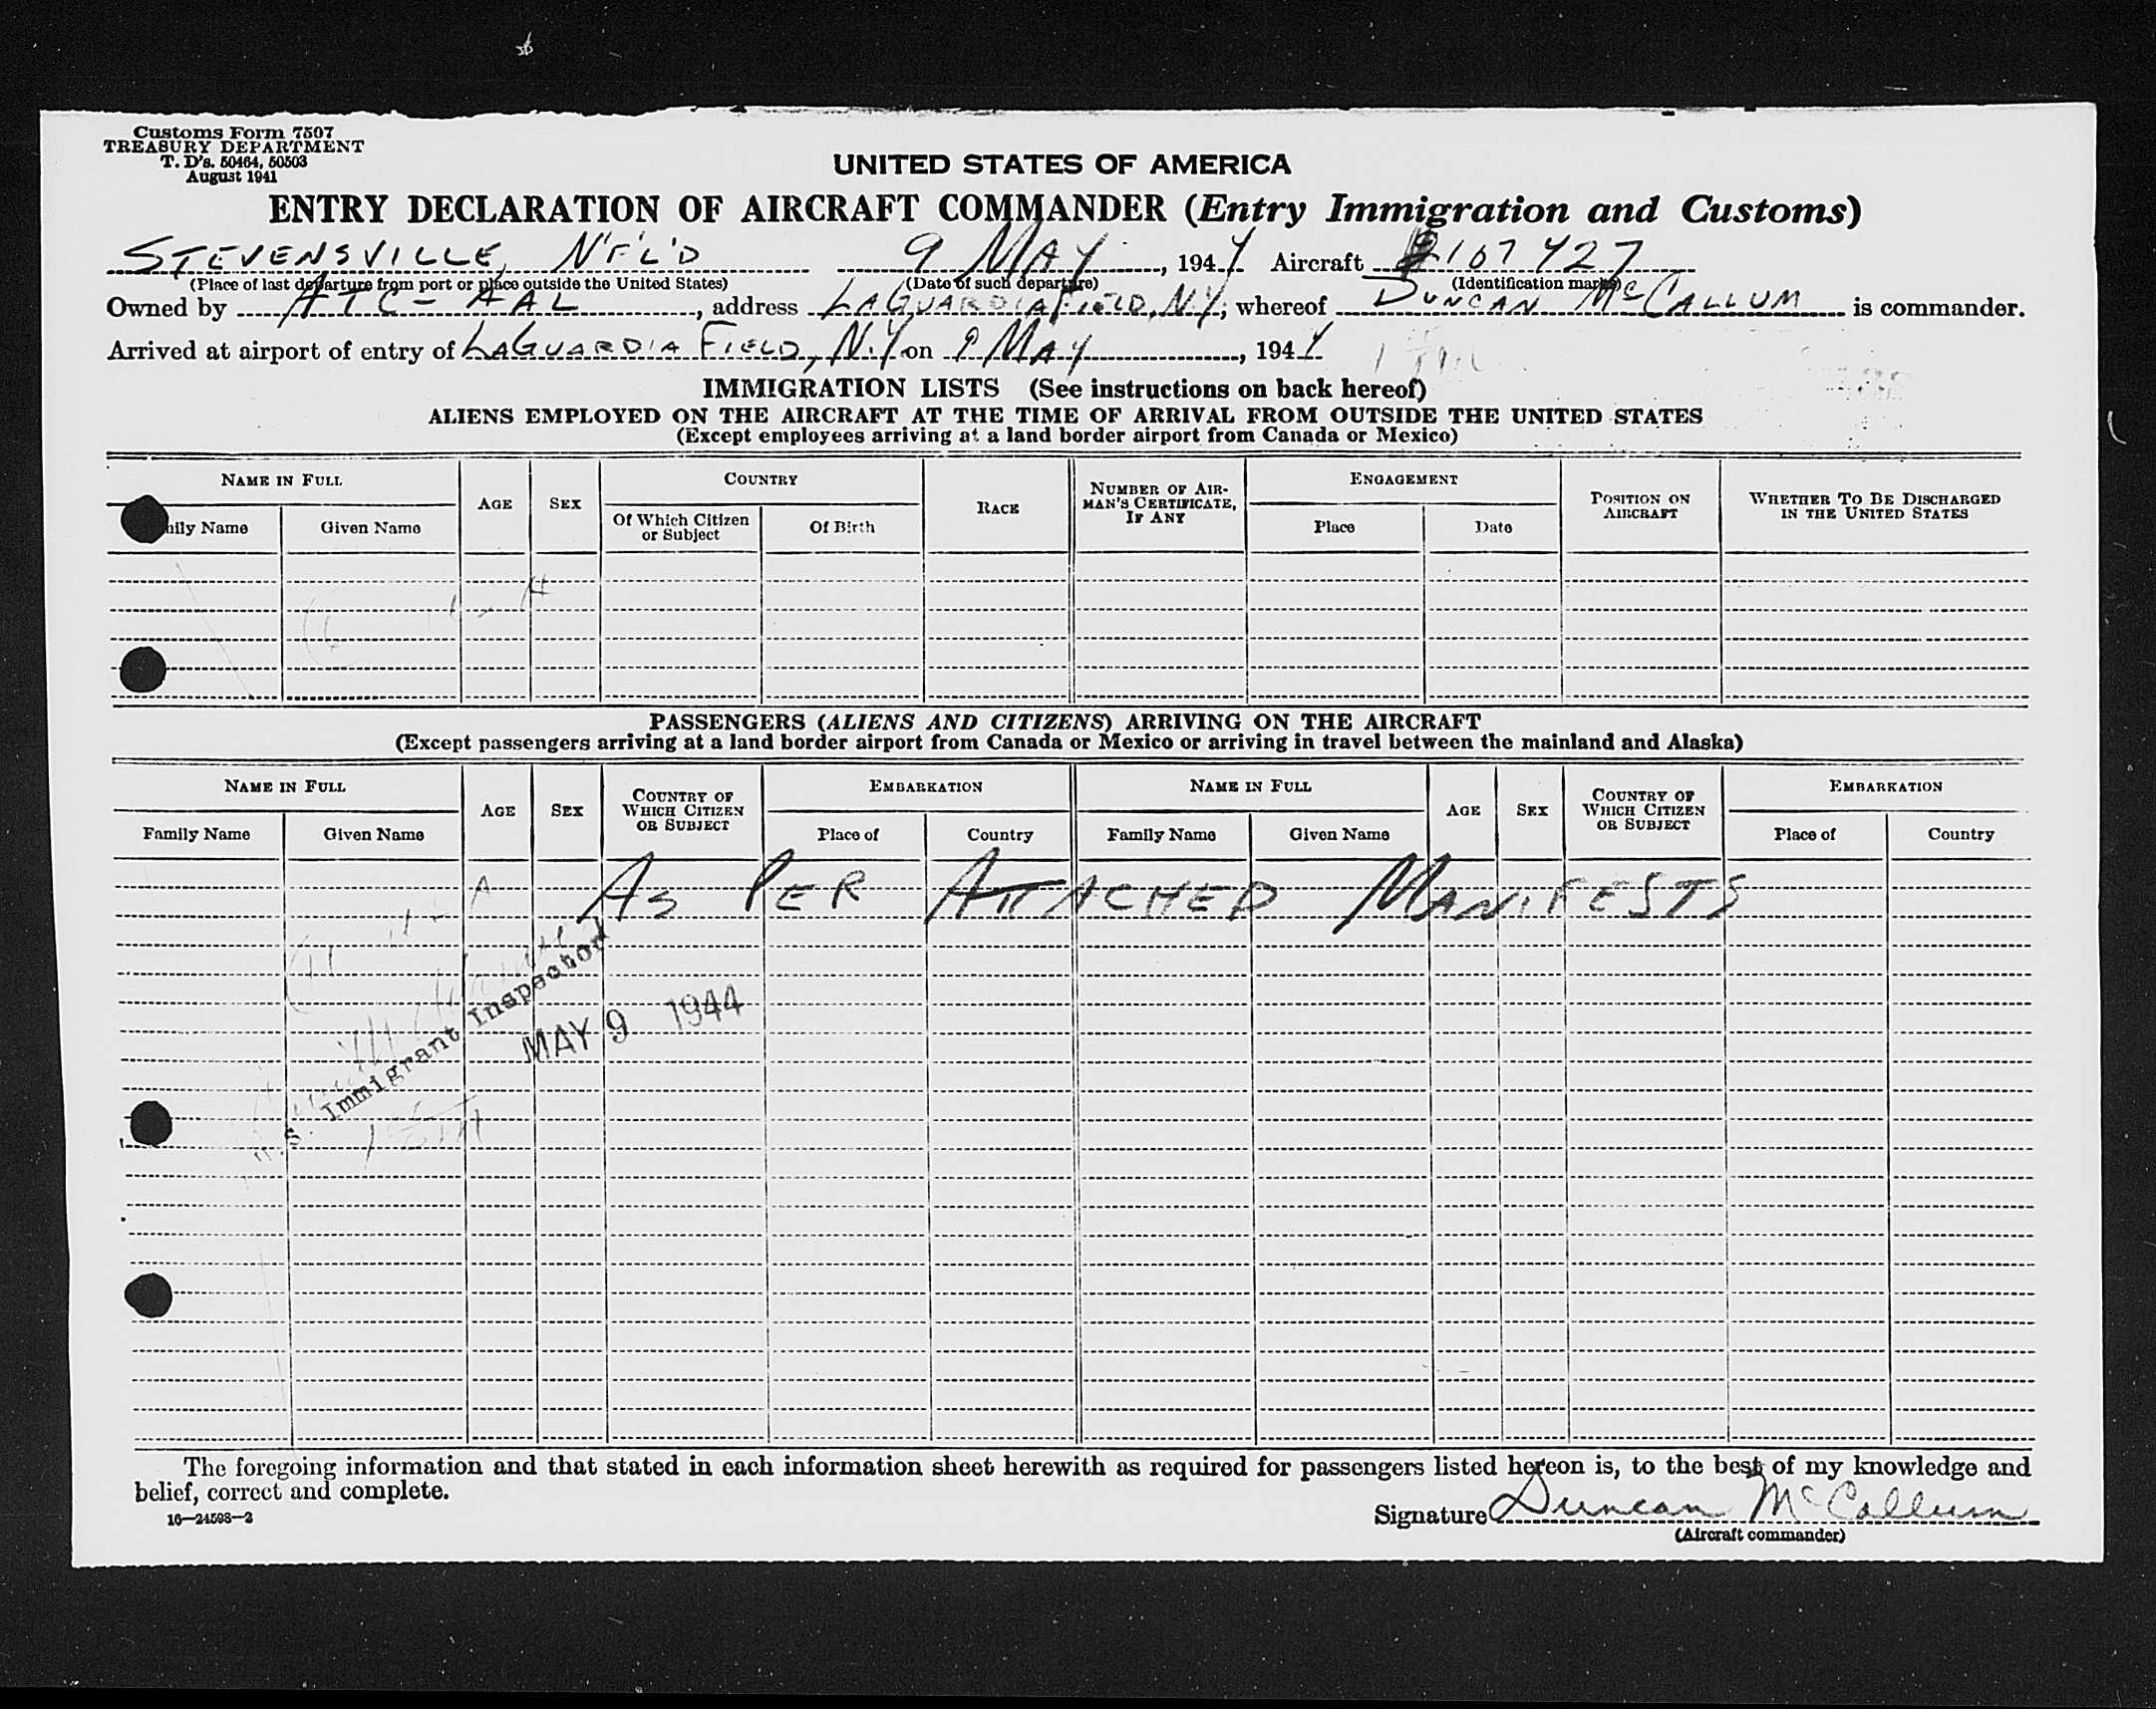 Customs Form 7507
TREASURY DEPARTMENT
T. D's. 50464, 50503
August 1941
UNITED STATES OF AMERICA
ENTRY DECLARATION OF AIRCRAFT COMMANDER (Entry Immigration and Customs)
STEVENSVILLE, N'F'L'D 9 MAY, 1944 Aircraft 107427
(Place of last departure from port or place outside the United States) (Date of such departure) (Identification marks)
Owned by ATC - AAL, address LAGUARDIA FIELD, N.Y; whereof DUNCAN McCALLUM is commander.
Arrived at airport of entry of LAGUARDIA FIELD, N.Y on 9 MAY, 1944
IMMIGRATION LISTS (See instructions on back hereof)
ALIENS EMPLOYED ON THE AIRCRAFT AT THE TIME OF ARRIVAL FROM OUTSIDE THE UNITED STATES
(Except employees arriving at a land border airport from Canada or Mexico)
NAME IN FULL AGE SEX COUNTRY RACE NUMBER OF AIRMAN'S CERTIFICATE, IF ANY ENGAGEMENT POSITION ON AIRCRAFT WHETHER TO BE DISCHARGED IN THE UNITED STATES
Name Given Name Of Which Citizen or Subject Of Birth Place Date
PASSENGERS (ALIENS AND CITIZENS) ARRIVING ON THE AIRCRAFT
(Except passengers arriving at a land border airport from Canada or Mexico or arriving in travel between the mainland and Alaska)
NAME IN FULL AGE SEX COUNTRY OF WHICH CITIZEN OR SUBJECT EMBARKATION NAME IN FULL AGE SEX COUNTRY OF WHICH CITIZEN OR SUBJECT EMBARKATION
Family Name Given Name Place of Country Family Name Given Name Place of Country
AS PER ATTACHED MANIFESTS
Immigrant Inspector
MAY 9 1944
The foregoing information and that stated in each information sheet herewith as required for passengers listed hereon is, to the best of my knowledge and
belief, correct and complete.
Signature Duncan McCallum
(Aircraft commander)
16—24598-2